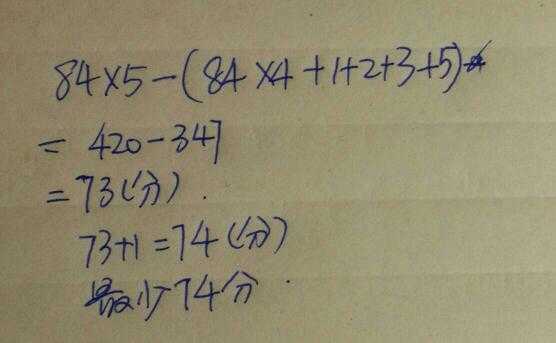 84×5-(84×4+1+2+3+5)
= 420-347
=73(分).
73+1=74(分)
最少74分.